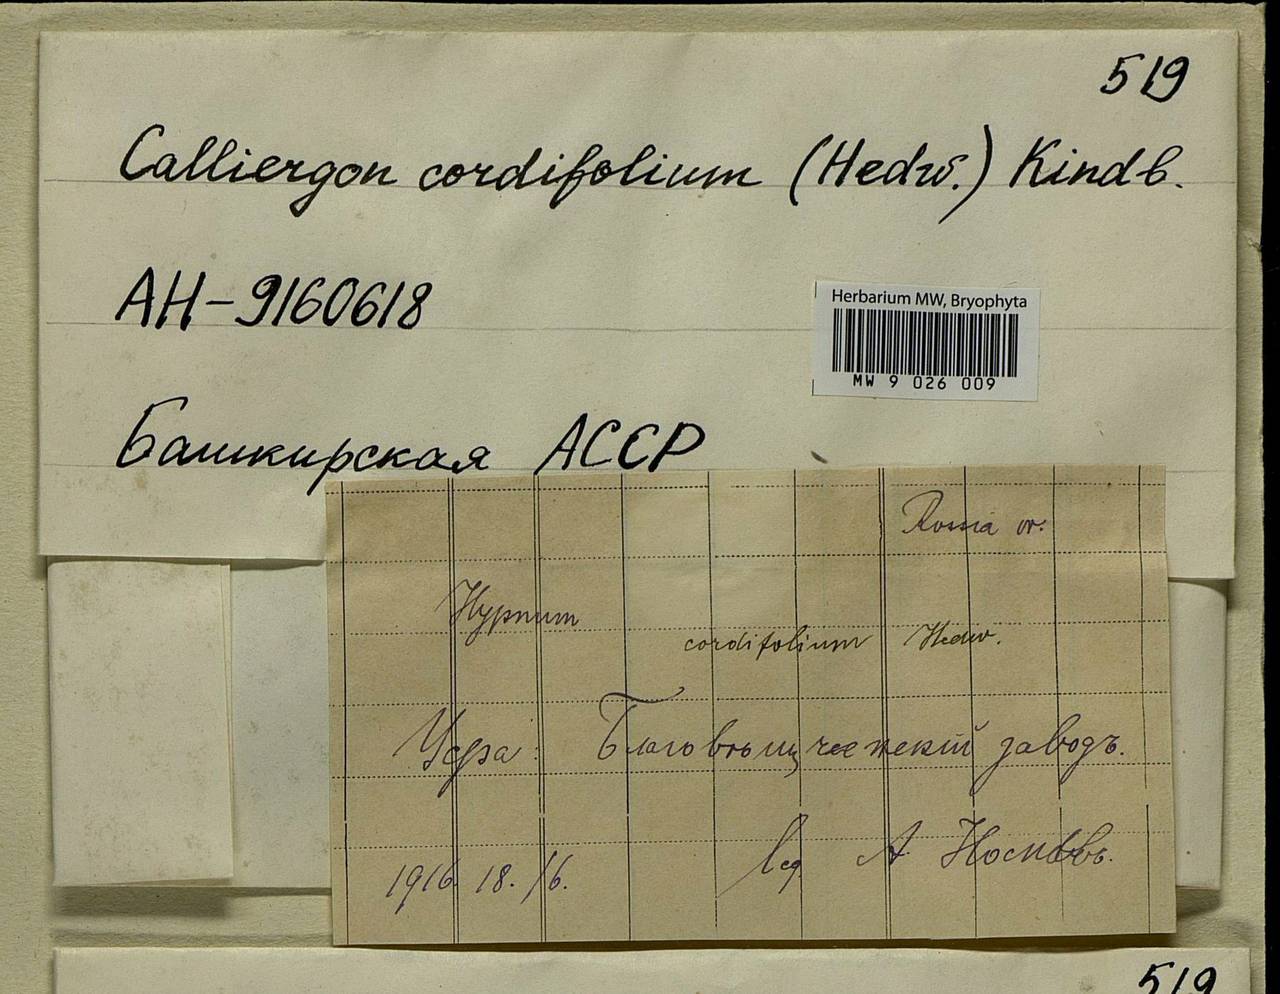 519
Calliergon cordifolium (Hedw.) Kindb.
АН-9160618
Herbarium MW, Bryophyta
MW 9 026 009
Башкирская АССР
Rossia or.
Hypnum
cordifolium Hedw.
Уфа: Благовѣщенскій заводъ.
1916 18. /6. leg. А.
519